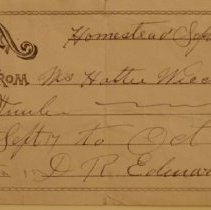 Homestead Sep
FROM Ms Hattie Wicc
Sept 17 to Oct
D R Edwar